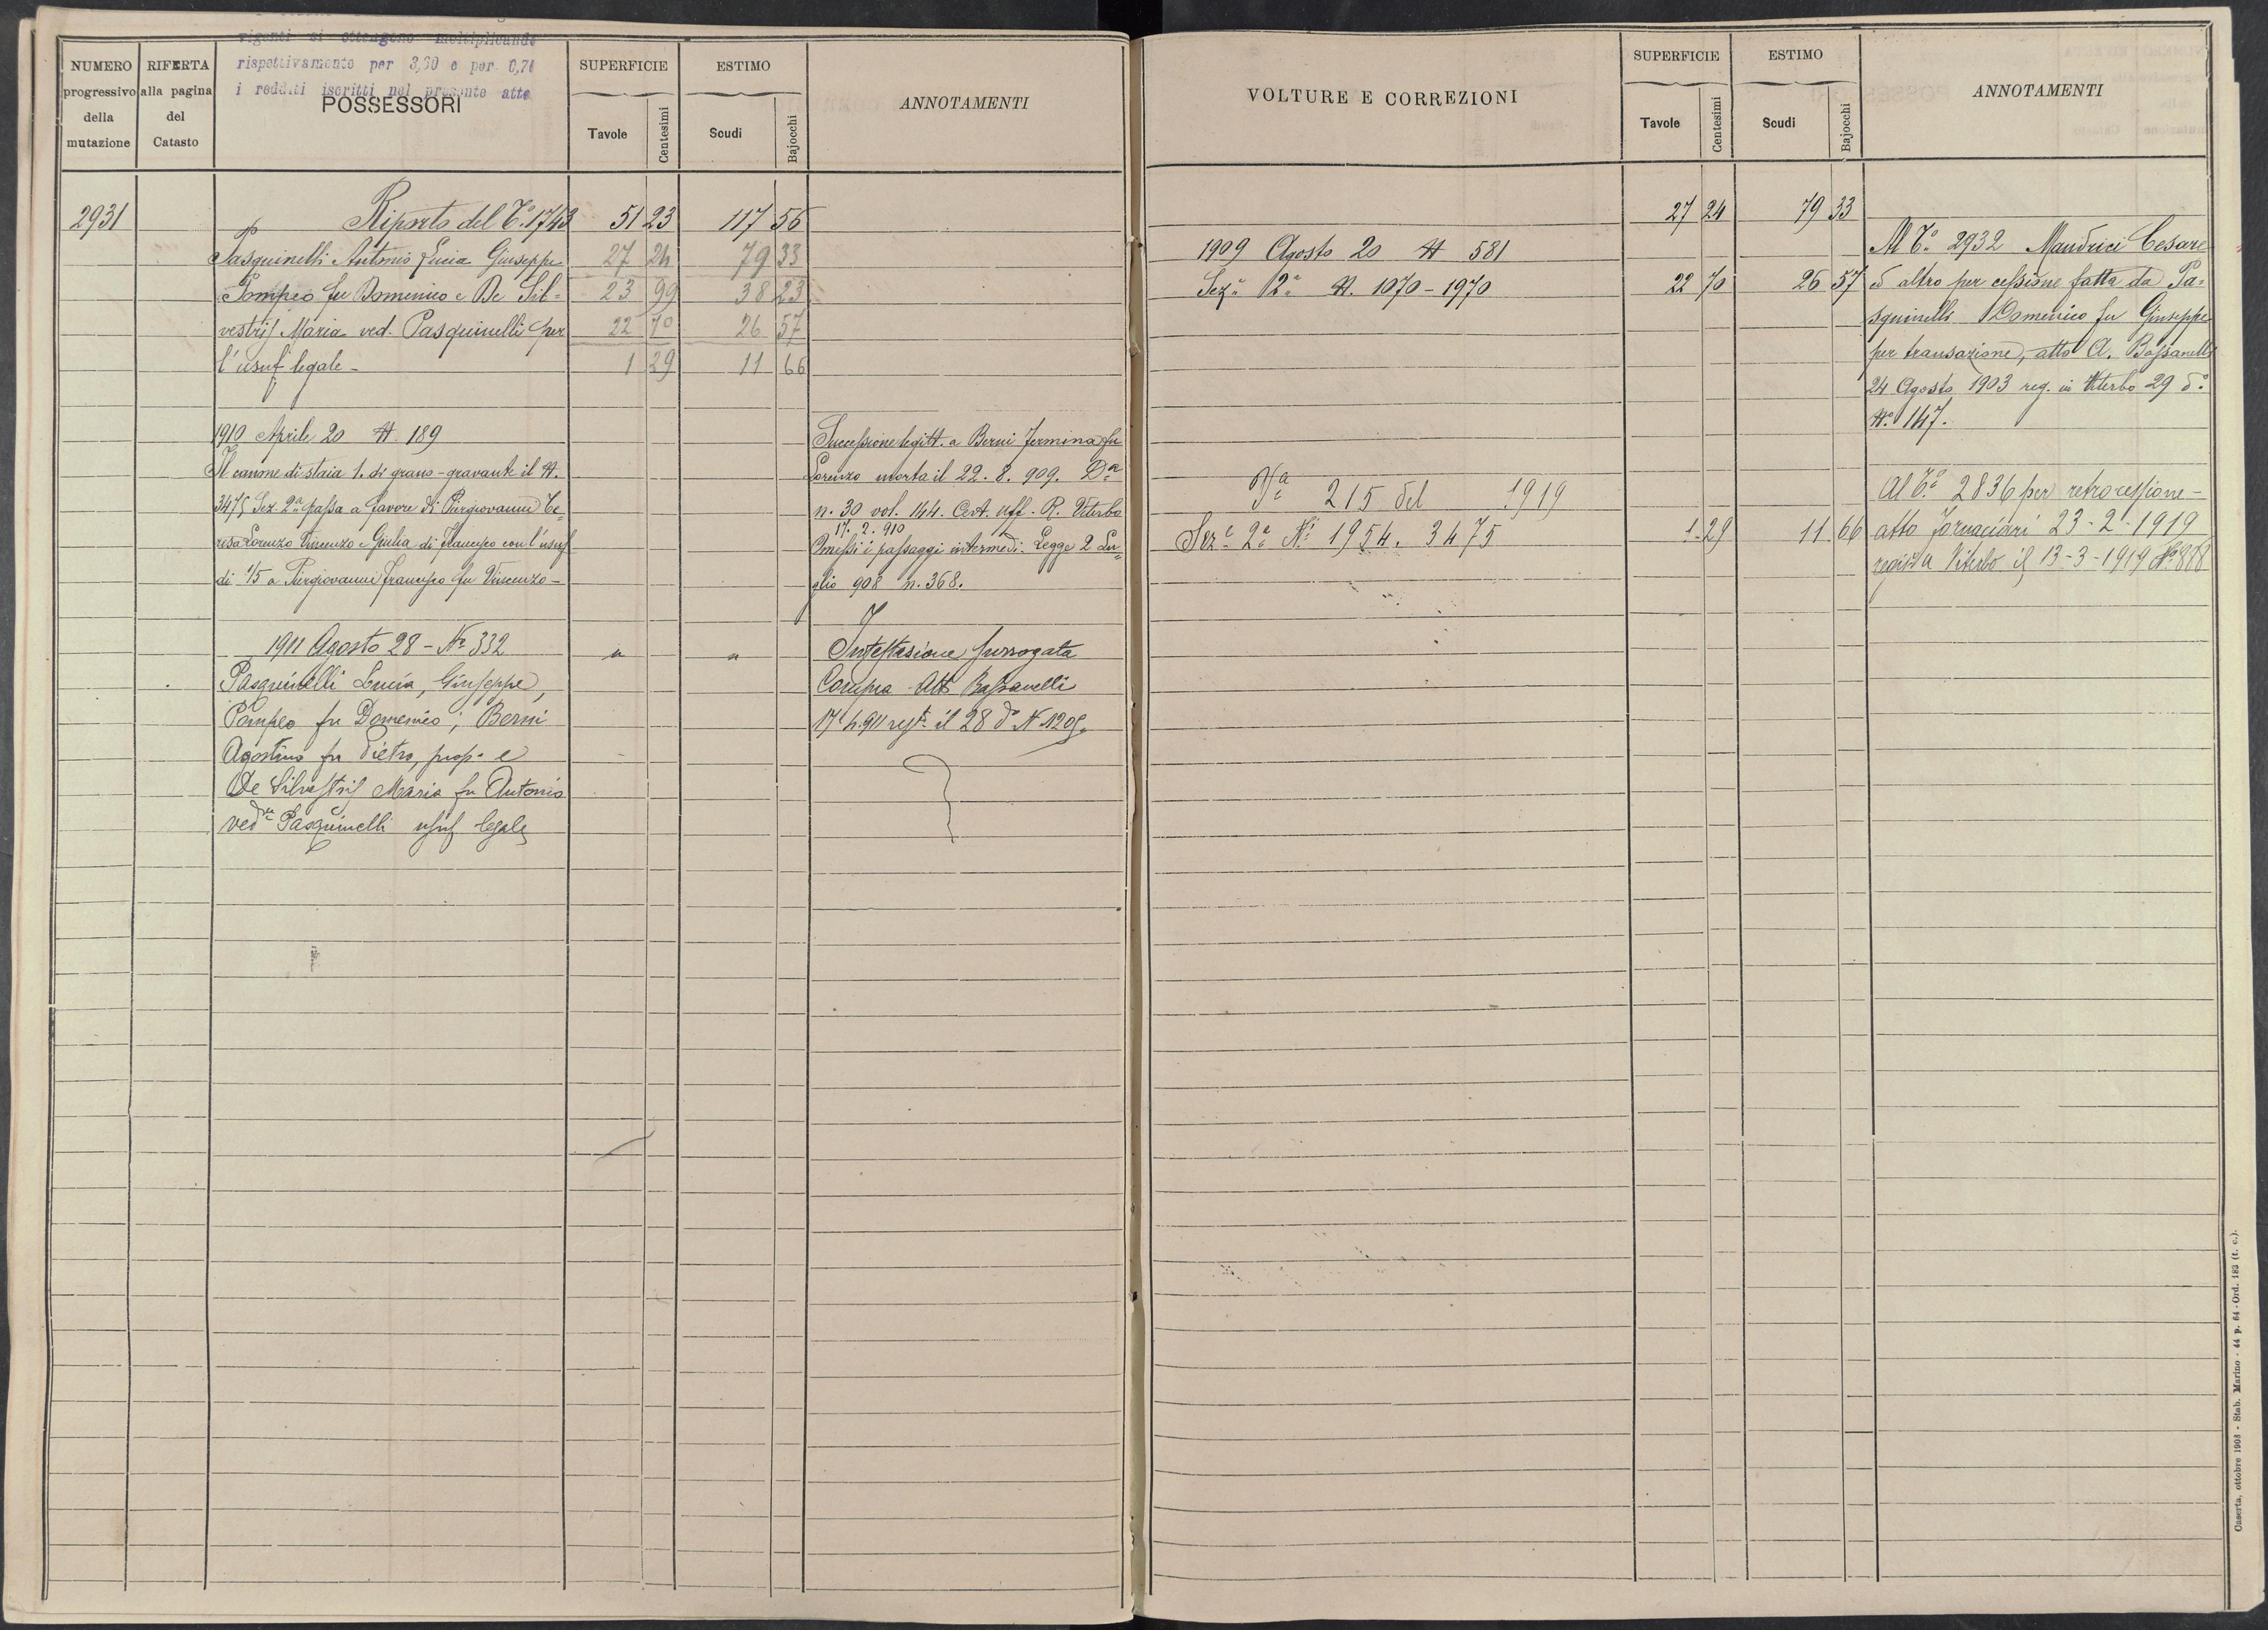 vigenti si ottengono moltiplicando
rispettivamente per 3,60 e per 0,71
i redditi iscritti nel presente atto
NUMERO progressivo della mutazione
RIFERTA alla pagina del Catasto
POSSESSORI
SUPERFICIE
Tavole
Centesimi
ESTIMO
Scudi
Bajocchi
ANNOTAMENTI
2931
Riporto del T.º 1743 51 23 117 56
Pasquinelli Antonio Lucia Giuseppe 27 24 79 33
Pompeo fu Domenico e De Sil= 23 99 38 23
vestris Maria ved. Pasquinelli per 22 70 26 57
l'usuf. legale - 1 29 11 66
1910 Aprile 20 N. 189
Il canone di staia 1. di grano - gravante il N.
3475 Sez. 2ª passa a favore di Piergiovanni Te=
resa Lorenzo Vincenzo e Giulia di Francesco con l'usuf
di 1/5 a Piergiovanni Francesco fu Vincenzo -
Successione legitt. a Berni Fermina fu
Lorenzo morta il 22. 8. 909. Dª
n. 30 vol. 144. Cert. uff. R. Viterbo
17. 2. 910
Omessi i passaggi intermedi. Legge 2 Lu=
glio 908 n. 368.
1911 Agosto 28 - Nº 332 " "
Pasquinelli Lucia, Giuseppe,
Pompeo fu Domenico; Berni
Agostino fu Pietro, prop. e
De Silvestris Maria fu Antonio
vedva Pasquinelli usuf legale
Intestazione surrogata
Compra Atto Bassanelli
17 4. 911 regto il 28 dº N 1205.
VOLTURE E CORREZIONI
SUPERFICIE
Tavole
Centesimi
ESTIMO
Scudi
Bajocchi
ANNOTAMENTI
27 24 79 33
1909 Agosto 20 N 581
Sezª 2ª N. 1070 - 1970 22 70 26 57
Al T.º 2932 Maudrici Cesare
ed altro per cessione fatta da Pa=
squinelli Domenico fu Giuseppe
per transazione, atto A. Bassanelli
24 Agosto 1903 reg. in Viterbo 29 dº
Nº 147.
Vª 215 del 1919
Sezª 2ª Nⁱ 1954. 3475 1 29 11 66
Al Tº 2836 per retrocessione -
atto Fornaciari 23-2-1919
regist a Viterbo il 13-3-1919 Nº 888
Caserta, ottobre 1908 - Stab. Marino - 44 p. 64 - Ord. 183 (t. c.).